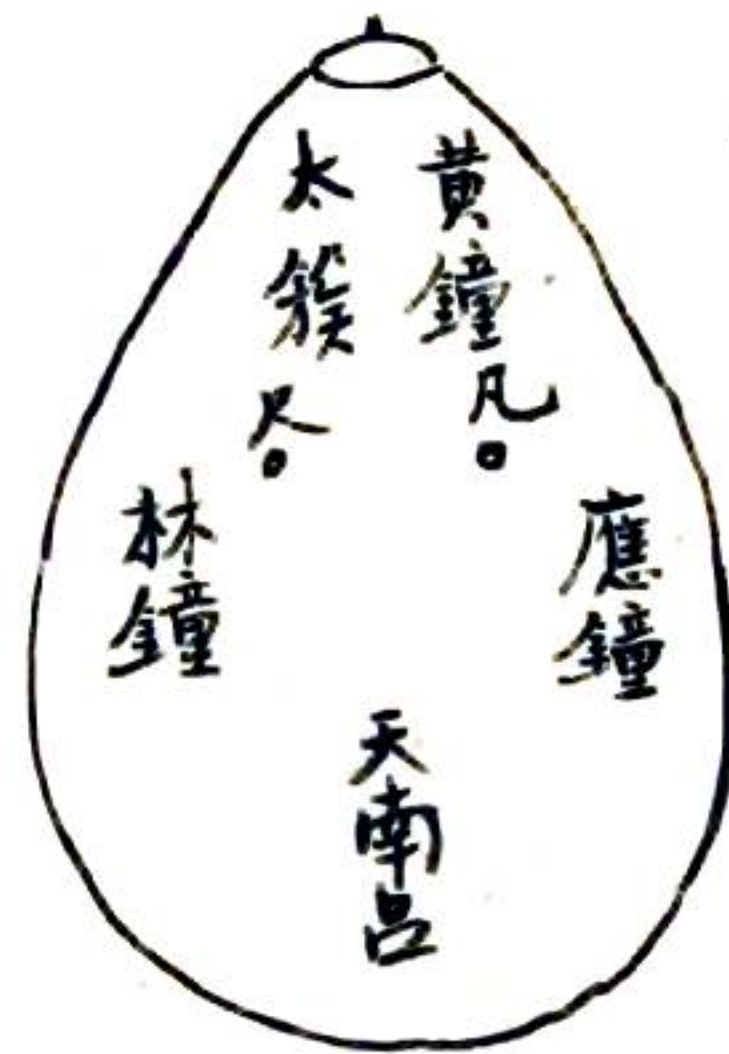 黄鐘凡
太簇尺
應鐘
林鐘
天南呂